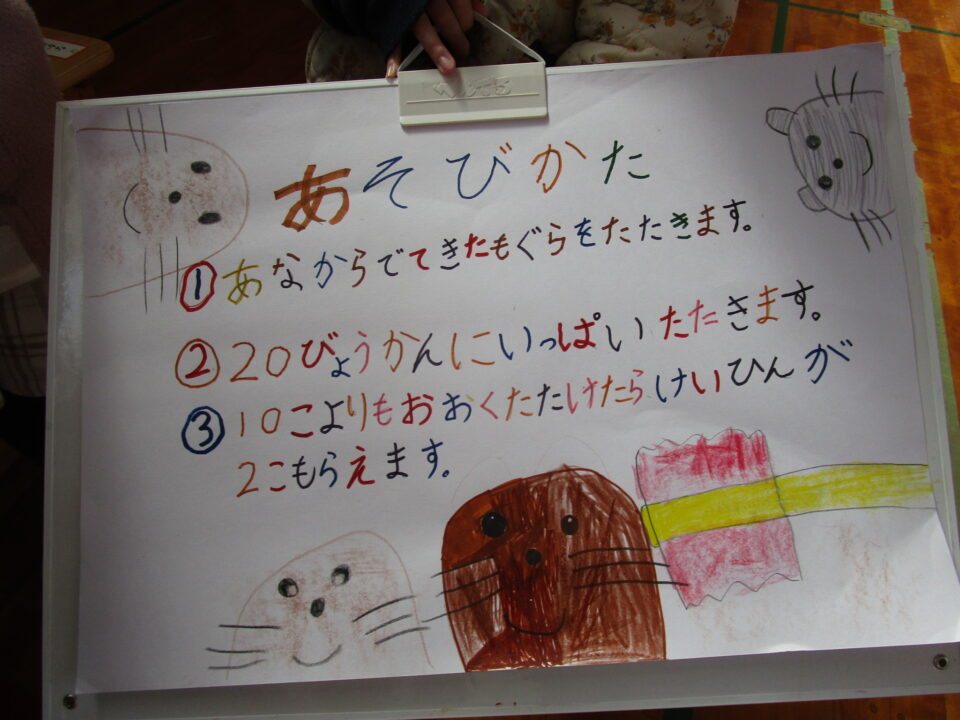 あそびかた
①あなからでてきたもぐらをたたきます。
②20びょうかんにいっぱいたたきます。
③10こよりもおおくたたけたらけいひんが
2こもらえます。